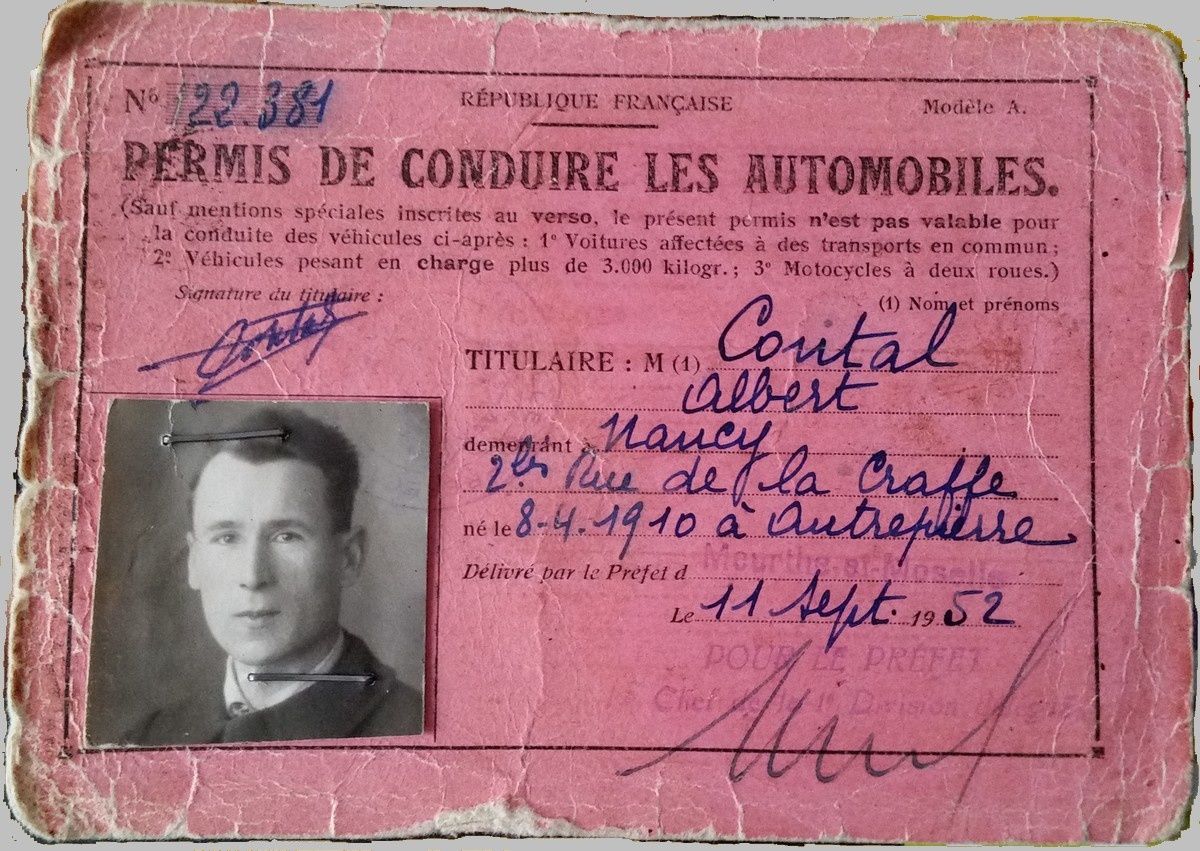 Nº 122.381
RÉPUBLIQUE FRANÇAISE
Modèle A.
PERMIS DE CONDUIRE LES AUTOMOBILES.
(Sauf mentions spéciales inscrites au verso, le présent permis n'est pas valable pour
la conduite des véhicules ci-après : 1º Voitures affectées à des transports en commun ;
2º Véhicules pesant en charge plus de 3.000 kilogr. ; 3º Motocycles à deux roues.)
Signature du titulaire :
Contal
(1) Nom et prénoms
TITULAIRE : M (1) Contal
Albert
demeurant à Nancy
2bis Rue de la Craffe
né le 8-4-1910 à Autrepierre
Délivré par le Préfet d Meurthe-et-Moselle
Le 11 Sept. 1952
POUR LE PRÉFET
Le Chef de la 1e Division